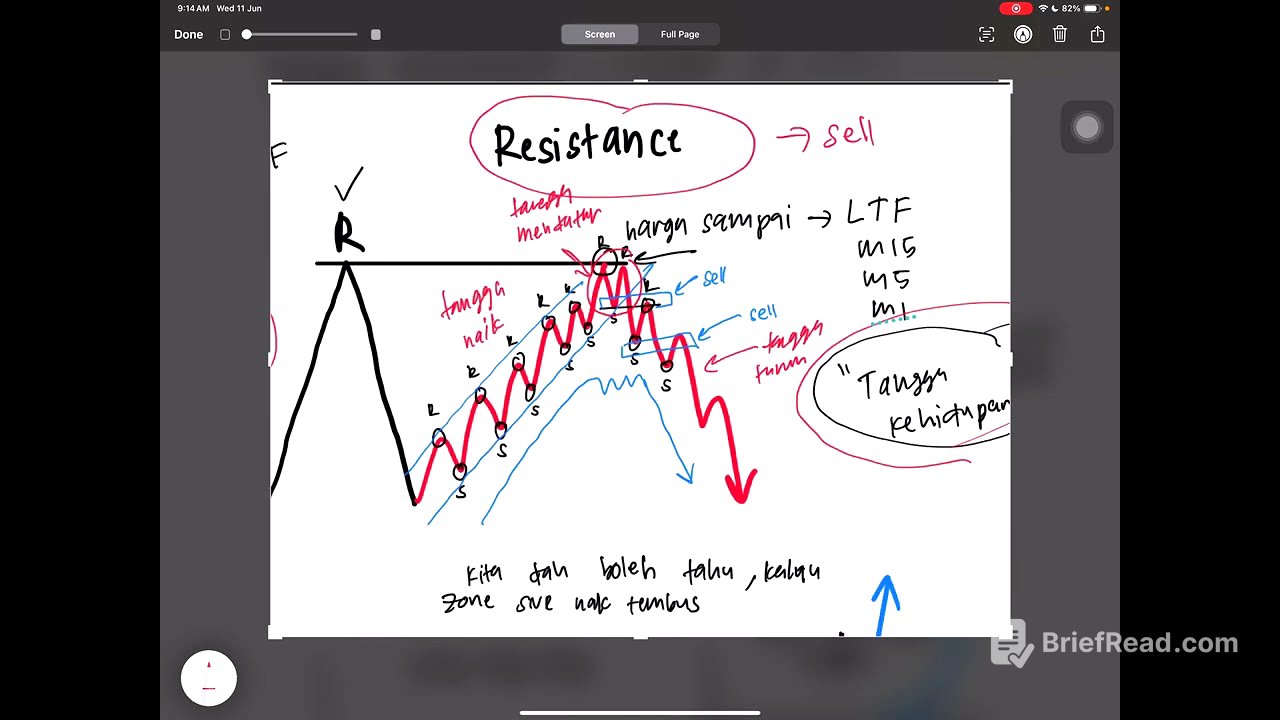 9:14 AM Wed 11 Jun
82%
Done
Screen
Full Page
Resistance → sell
F
R
tangga
mendatar
harga sampai → LTF
m15
m5
m1
R
R
R
R
R
R
R
R
tangga
naik
sell
sell
tangga
turun
S
S
S
S
S
S
S
S
"Tangga
kehidupan
kita tak boleh tahu, kalau
zone SNR nak tembus
BriefRead.com